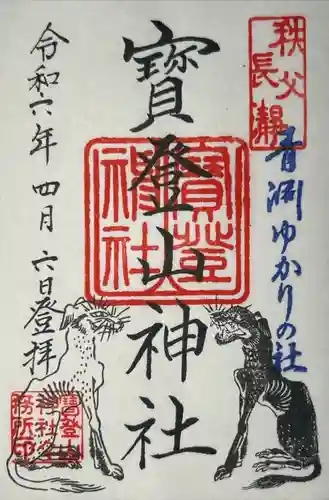 秩父
長瀞
青淵ゆかりの社
寳登山神社
寳登
山神
社
令和六年四月六日登拝
寳登山
神社社
務所印